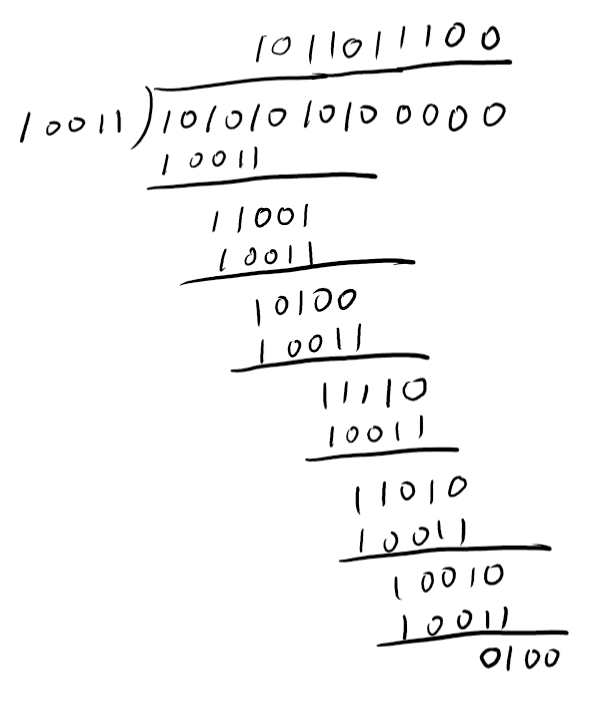 1011011100
10011)10101010100000
10011
11001
10011
10100
10011
11110
10011
11010
10011
10010
10011
0100